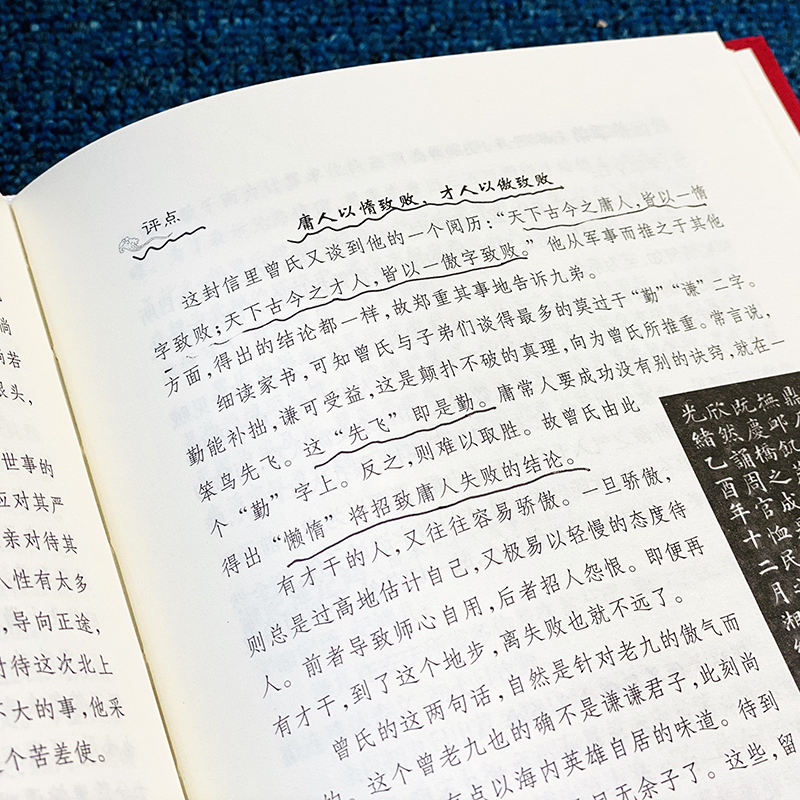 若
头,
世事的
应对其严
亲对待其
人性有太多
,导向正途,
对待这次北上
不大的事,他采
个苦差使。
评点
庸人以惰致败,才人以傲致败
这封信里曾氏又谈到他的一个阅历:“天下古今之庸人,皆以一惰
字致败;天下古今之才人,皆以一傲字致败。”他从军事而推之于其他
方面,得出的结论都一样,故郑重其事地告诉九弟。
细读家书,可知曾氏与子弟们谈得最多的莫过于“勤”“谦”二字。
勤能补拙,谦可受益,这是颠扑不破的真理,向为曾氏所推重。常言说,
笨鸟先飞。这“先飞”即是勤。庸常人要成功没有别的诀窍,就在一
个“勤”字上。反之,则难以取胜。故曾氏由此
得出“懒惰”将招致庸人失败的结论。
有才干的人,又往往容易骄傲。一旦骄傲,
则总是过高地估计自己,又极易以轻慢的态度待
人。前者导致师心自用,后者招人怨恨。即便再
有才干,到了这个地步,离失败也就不远了。
曾氏的这两句话,自然是针对老九的傲气而
的。这个曾老九也的确不是谦谦君子,此刻尚
有点以海内英雄自居的味道。待到
目无余子了。这些,留
既慶橋之成
欣然誦周官恤民
光緒乙酉年十二月湘